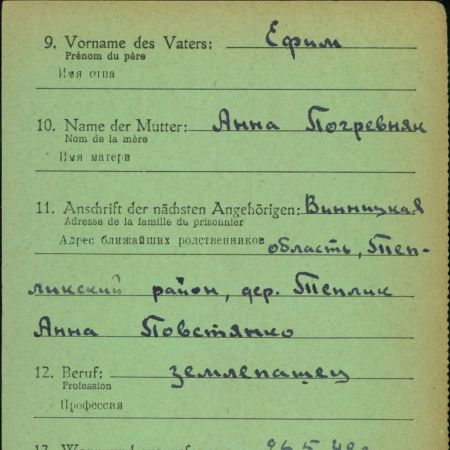 9. Vorname des Vaters: Ефим
Prénom du père
Имя отца
10. Name der Mutter: Анна Погревняк
Nom de la mère
Имя матери
11. Anschrift der nächsten Angehörigen: Винницкая
Adresse de la famille du prisonnier
Адрес ближайших родственников область, Теп-
ликский район, дер. Теплик
Анна Повстянко
12. Beruf: землепашец
Profession
Профессия
13.